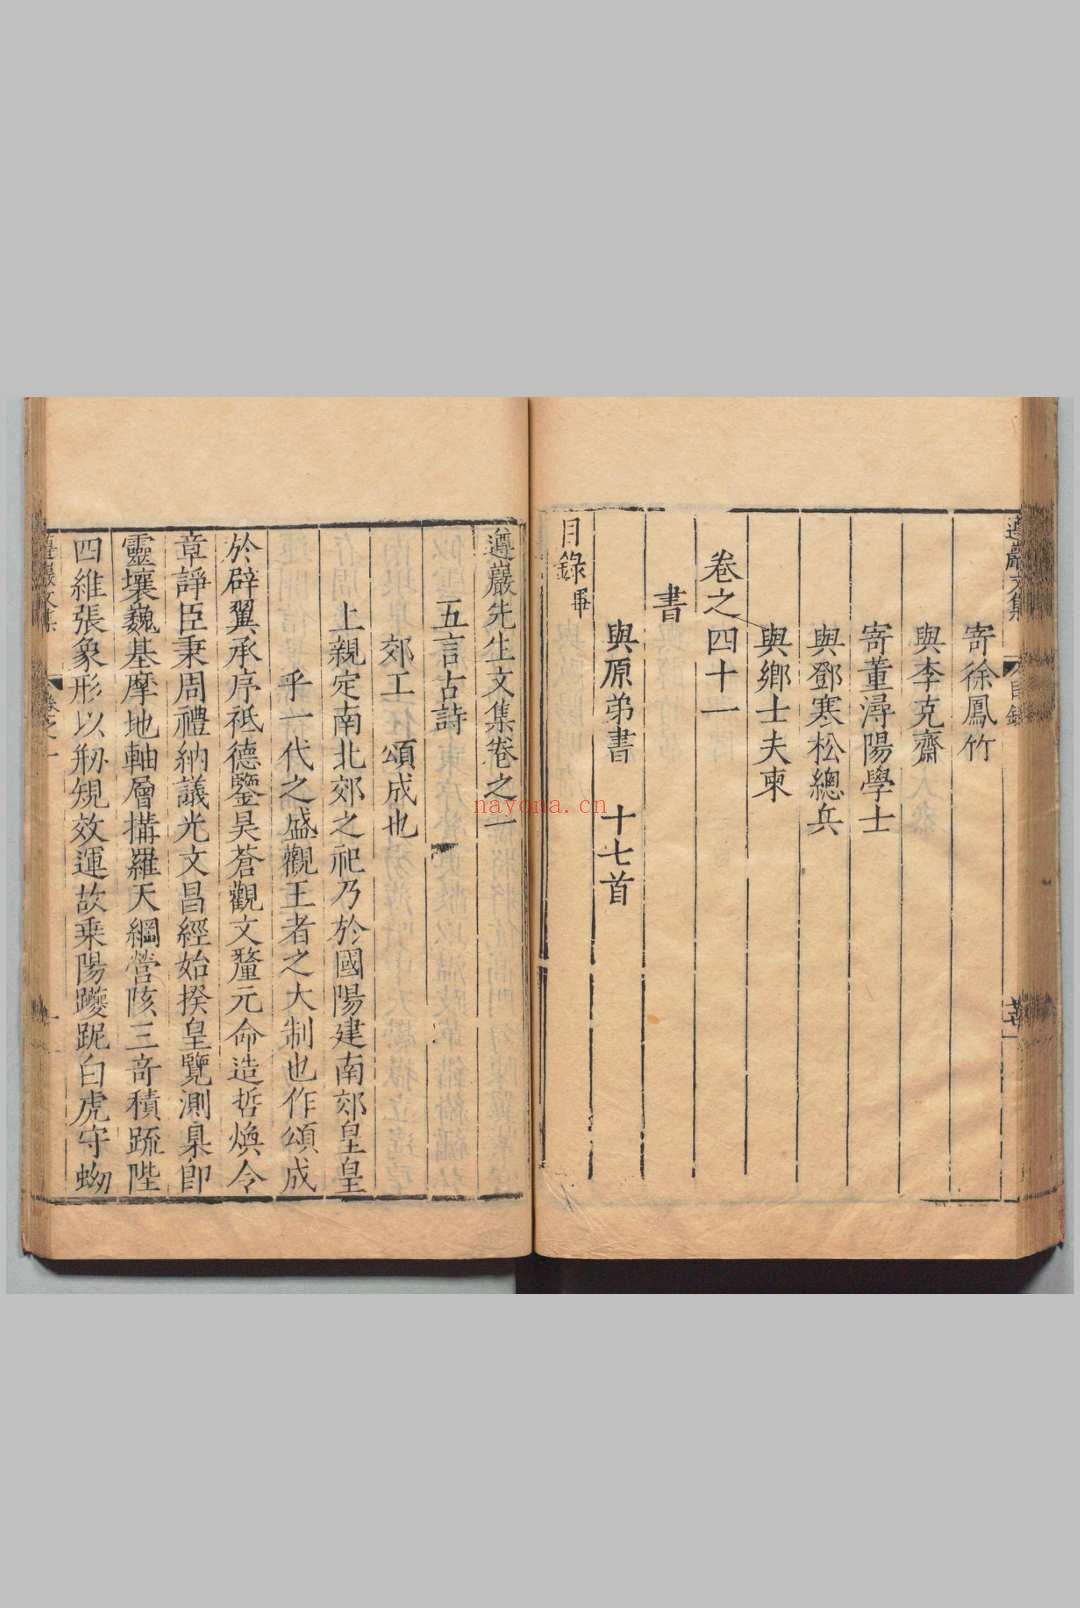 寄徐鳳竹
與李克齋
寄董潯陽學士
與鄧寒松總兵
與鄉士夫柬
卷之四十一
書
與原弟書 十七首
目錄畢
遵巖先生文集卷之一
五言古詩
郊工 頌成也
上親定南北郊之祀乃於國陽建南郊皇皇
乎一代之盛觀王者之大制也作頌成
於辟翼承序祗德鑒昊蒼觀文釐元命造哲煥令
章諍臣秉周禮納議光文昌經始揆皇覽測臬即
靈壤巍基摩地軸層搆羅天綱營陔三奇積䟽陛
四維張象形以剏規效運故乗陽躨跜白虎守蚴
遵巖文集
目錄
遵巖文集
卷之一
nayona.cn